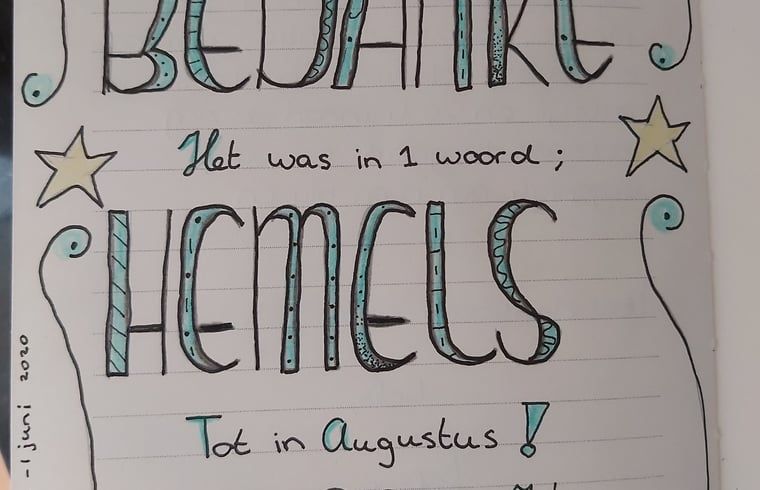 BEDANKT
Het was in 1 woord;
HEMELS
Tot in Augustus!
-1 juni 2020